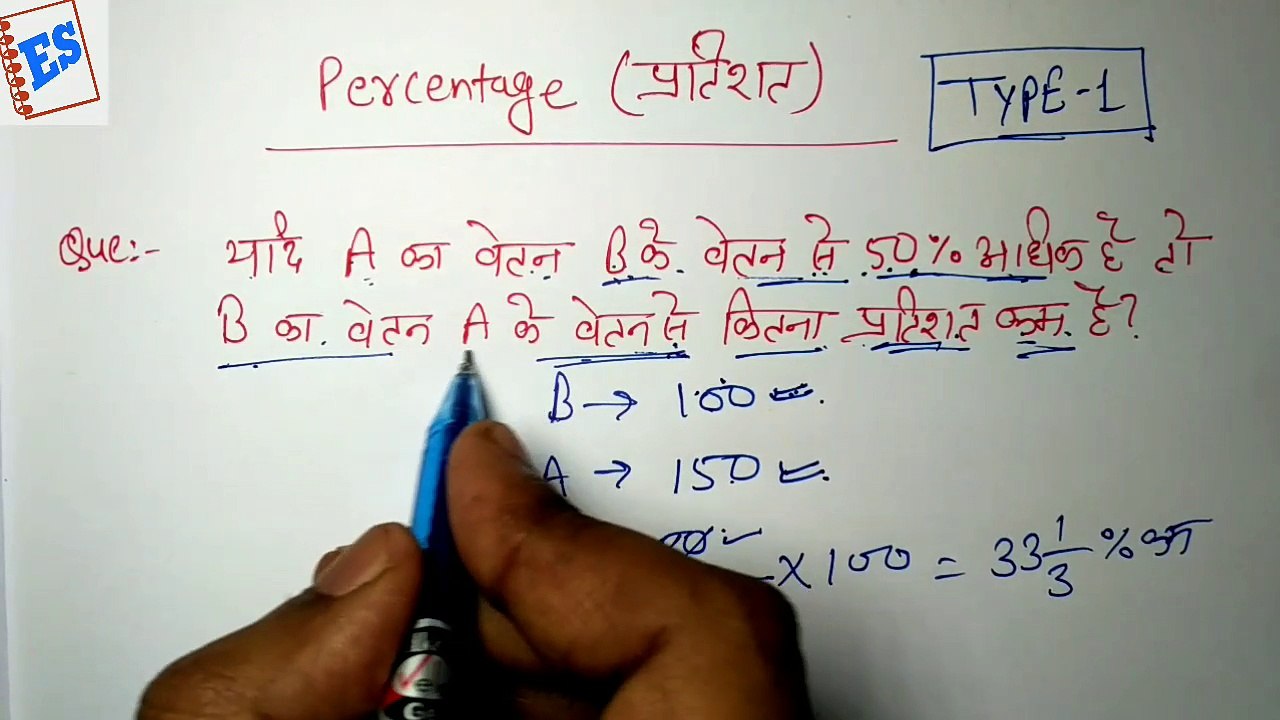 ES
Percentage (प्रतिशत)
TYPE-1
Que:- यदि A का वेतन B के वेतन से 50% अधिक है तो
B का वेतन A के वेतन से कितना प्रतिशत कम है?
B → 100
A → 150
× 100 = 33 1/3 % कम